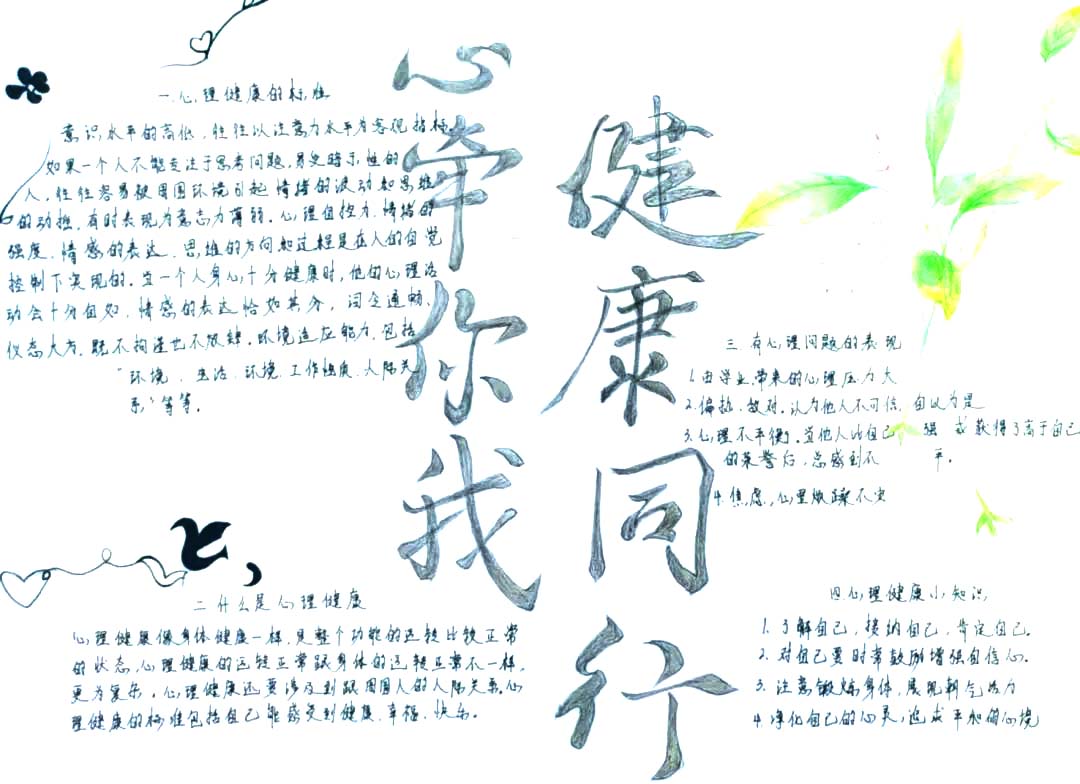 心牵你我
健康同行
一.心理健康的标准
意识水平的高低,往往以注意力水平为客观指标.
如果一个人不能专注于思考问题,易受暗示性的
人,往往容易被周围环境引起情绪的波动和思维
的动摇,有时表现为意志力薄弱.心理自控力.情绪的
强度.情感的表达.思维的方向和过程是在人的自觉
控制下实现的.当一个人身心十分健康时,他的心理活
动会十分自如,情感的表达恰如其分,词全通畅、
仪态大方.既不拘谨也不放肆.环境适应能力.包括
"环境.生活.环境.工作性质.人际关
系"等等.
二 什么是心理健康
心理健康像身体健康一样,是整个功能的运转比较正常
的状态,心理健康的运转正常跟身体的运转正常不一样,
更为复杂.心理健康还要涉及到跟周围人的人际关系.心
理健康的标准包括自己能感受到健康.幸福.快乐.
三 有心理问题的表现
1.由学业带来的心理压力大
2.偏执.敌对.认为他人不可信,自以为是
3.心理不平衡.当他人比自己强 或获得了高于自己
的荣誉后,总感到不平.
4.焦虑,心里烦躁不安
四.心理健康小知识
1.了解自己,接纳自己,肯定自己.
2.对自己要时常鼓励增强自信心.
3.注意锻炼身体,展现朝气活力
4.净化自己的心灵,造成平和的心境